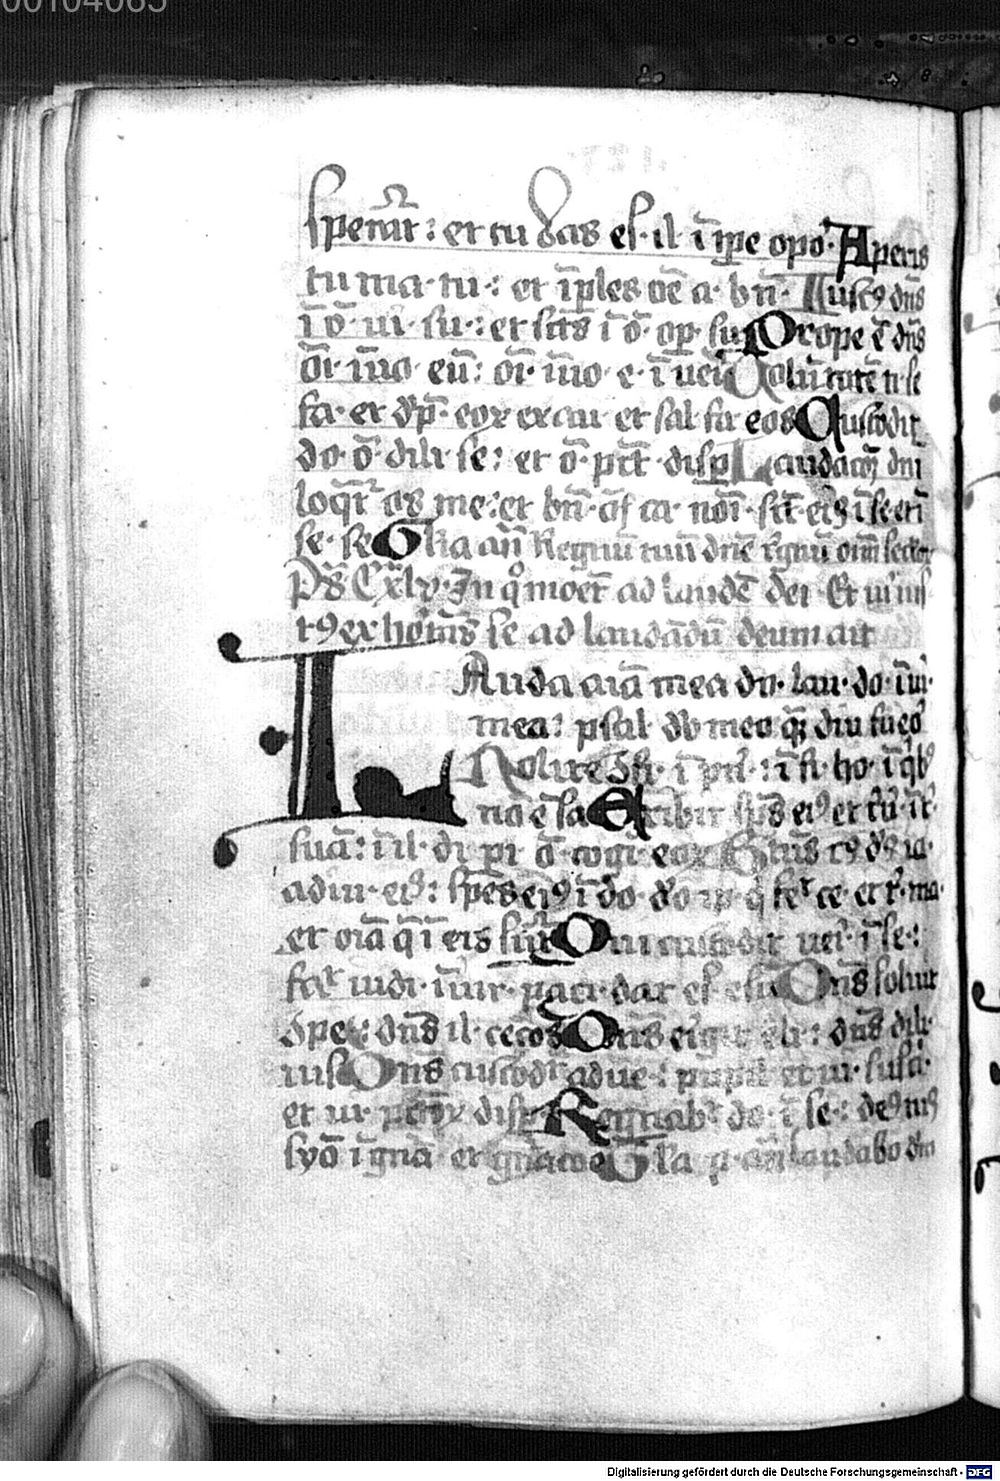 00104085
sperāt: et tu das es· il· ī tpe opo· Aperis
tu ma· tu·: et īples oē a· bn̄· Iustꝰ dn̄s
ī o· ui· su·: et scts ī o· op· su Prope ē dn̄s
oī· īuo· eū: oī· īuo· e· ī ueī Uolūtatē ti· se
fa· et dp̄· eoꝝ exau· et sal· fa· eos Custodit
do· o· dili· se: et o· pctr· disp Laudacōꝫ dni
loqr̄ os me: et bn̄· ca· noī· sct· eiꝰ ī se· etī
se· se Glia an̄ Regnū tuū dn̄e regnū oīm seclor
Ps Cxlv· In q° monet ad laudē dei· Et
tꝰ ex se ad laudādū deum ait
LAuda aīa mea do· lau· do· ī ui·
mea: psal· do meo diu fueo
Nolite fi· ī pn̄·: ī fi· ho· ī qbꝰ
nō ē sa Exibit sps eiꝰ et in
suā: ī il· di pi ō cogi· eoꝝ cꝰ dꝰ ia·
adiu· eiꝰ: spes eiꝰ ī do· do ip· q fe· ce· et t· ma·
et oīa q ī eis sūt Qui custodit uei· ī se·:
fac iudi· īiur· paci· dat es· esu Dn̄s soluit
9pe·: dn̄s il· cecos Dn̄s eigit eli·: dn̄s dili·
ius Dn̄s custodit adue·: pupil· et ui· susci·
et ui· pctoꝝ disp Regnabt do· ī se·: deꝰ tuꝰ
syō ī gnā· et gnācoe Gla p· an̄ laudabo dm
Digitalisierung gefördert durch die Deutsche Forschungsgemeinschaft - DFG